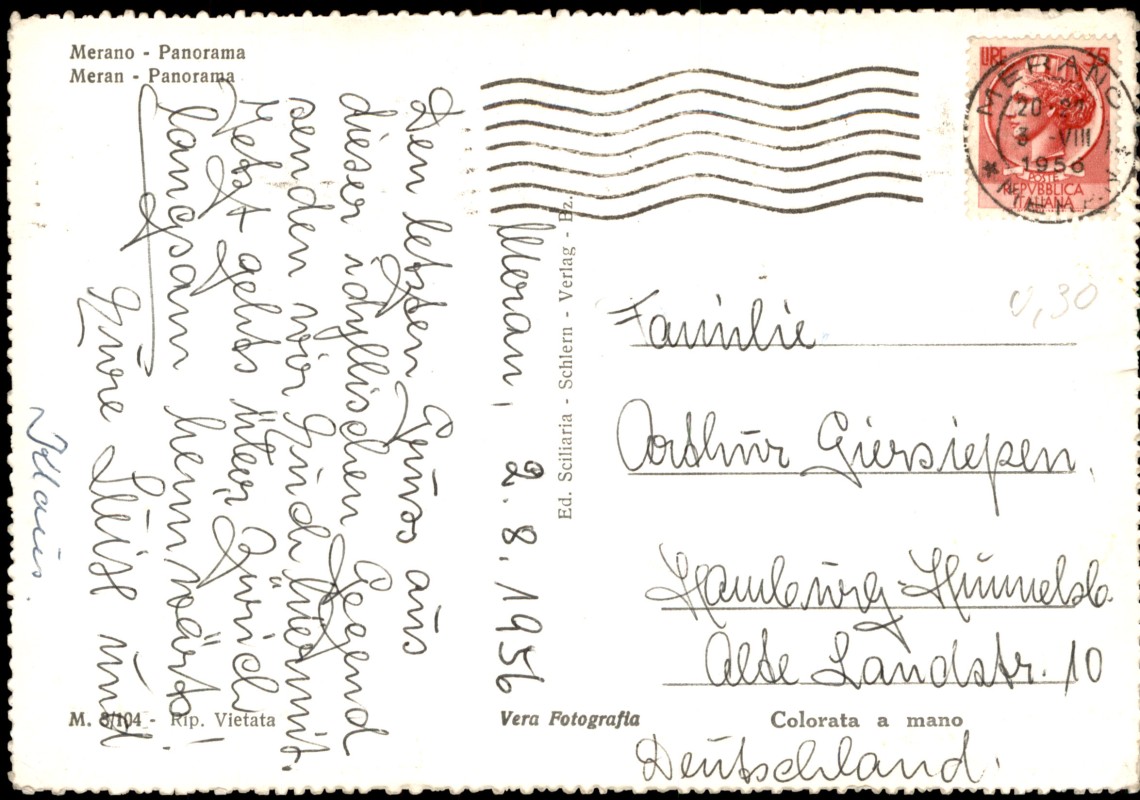 Merano - Panorama
Meran - Panorama
Meran, 2. 8. 1956
Den letzten Gruss aus
dieser idyllischen Gegend
senden wir Euch hiermit.
Jetzt gehts über Zürich
langsam heimwärts!
Eure Luise und
Klaus.
Ed. Sciliaria - Schlern - Verlag - Bz.
LIRE 35
MERANO
20-21
3 -VIII
1956
POSTE
REPVBBLICA
ITALIANA
0,30
Familie
Arthur Giersiepen.
Hamburg-Hummelsb.
Alte Landstr. 10
Deutschland.
M. 8/104 - Rip. Vietata
Vera Fotografia
Colorata a mano